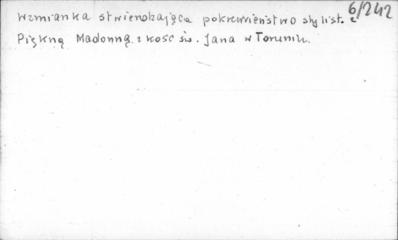 6/242
wzmianka stwierdzająca pokrewieństwo stylist. z
Piękną Madonną z kośc św. Jana w Toruniu.